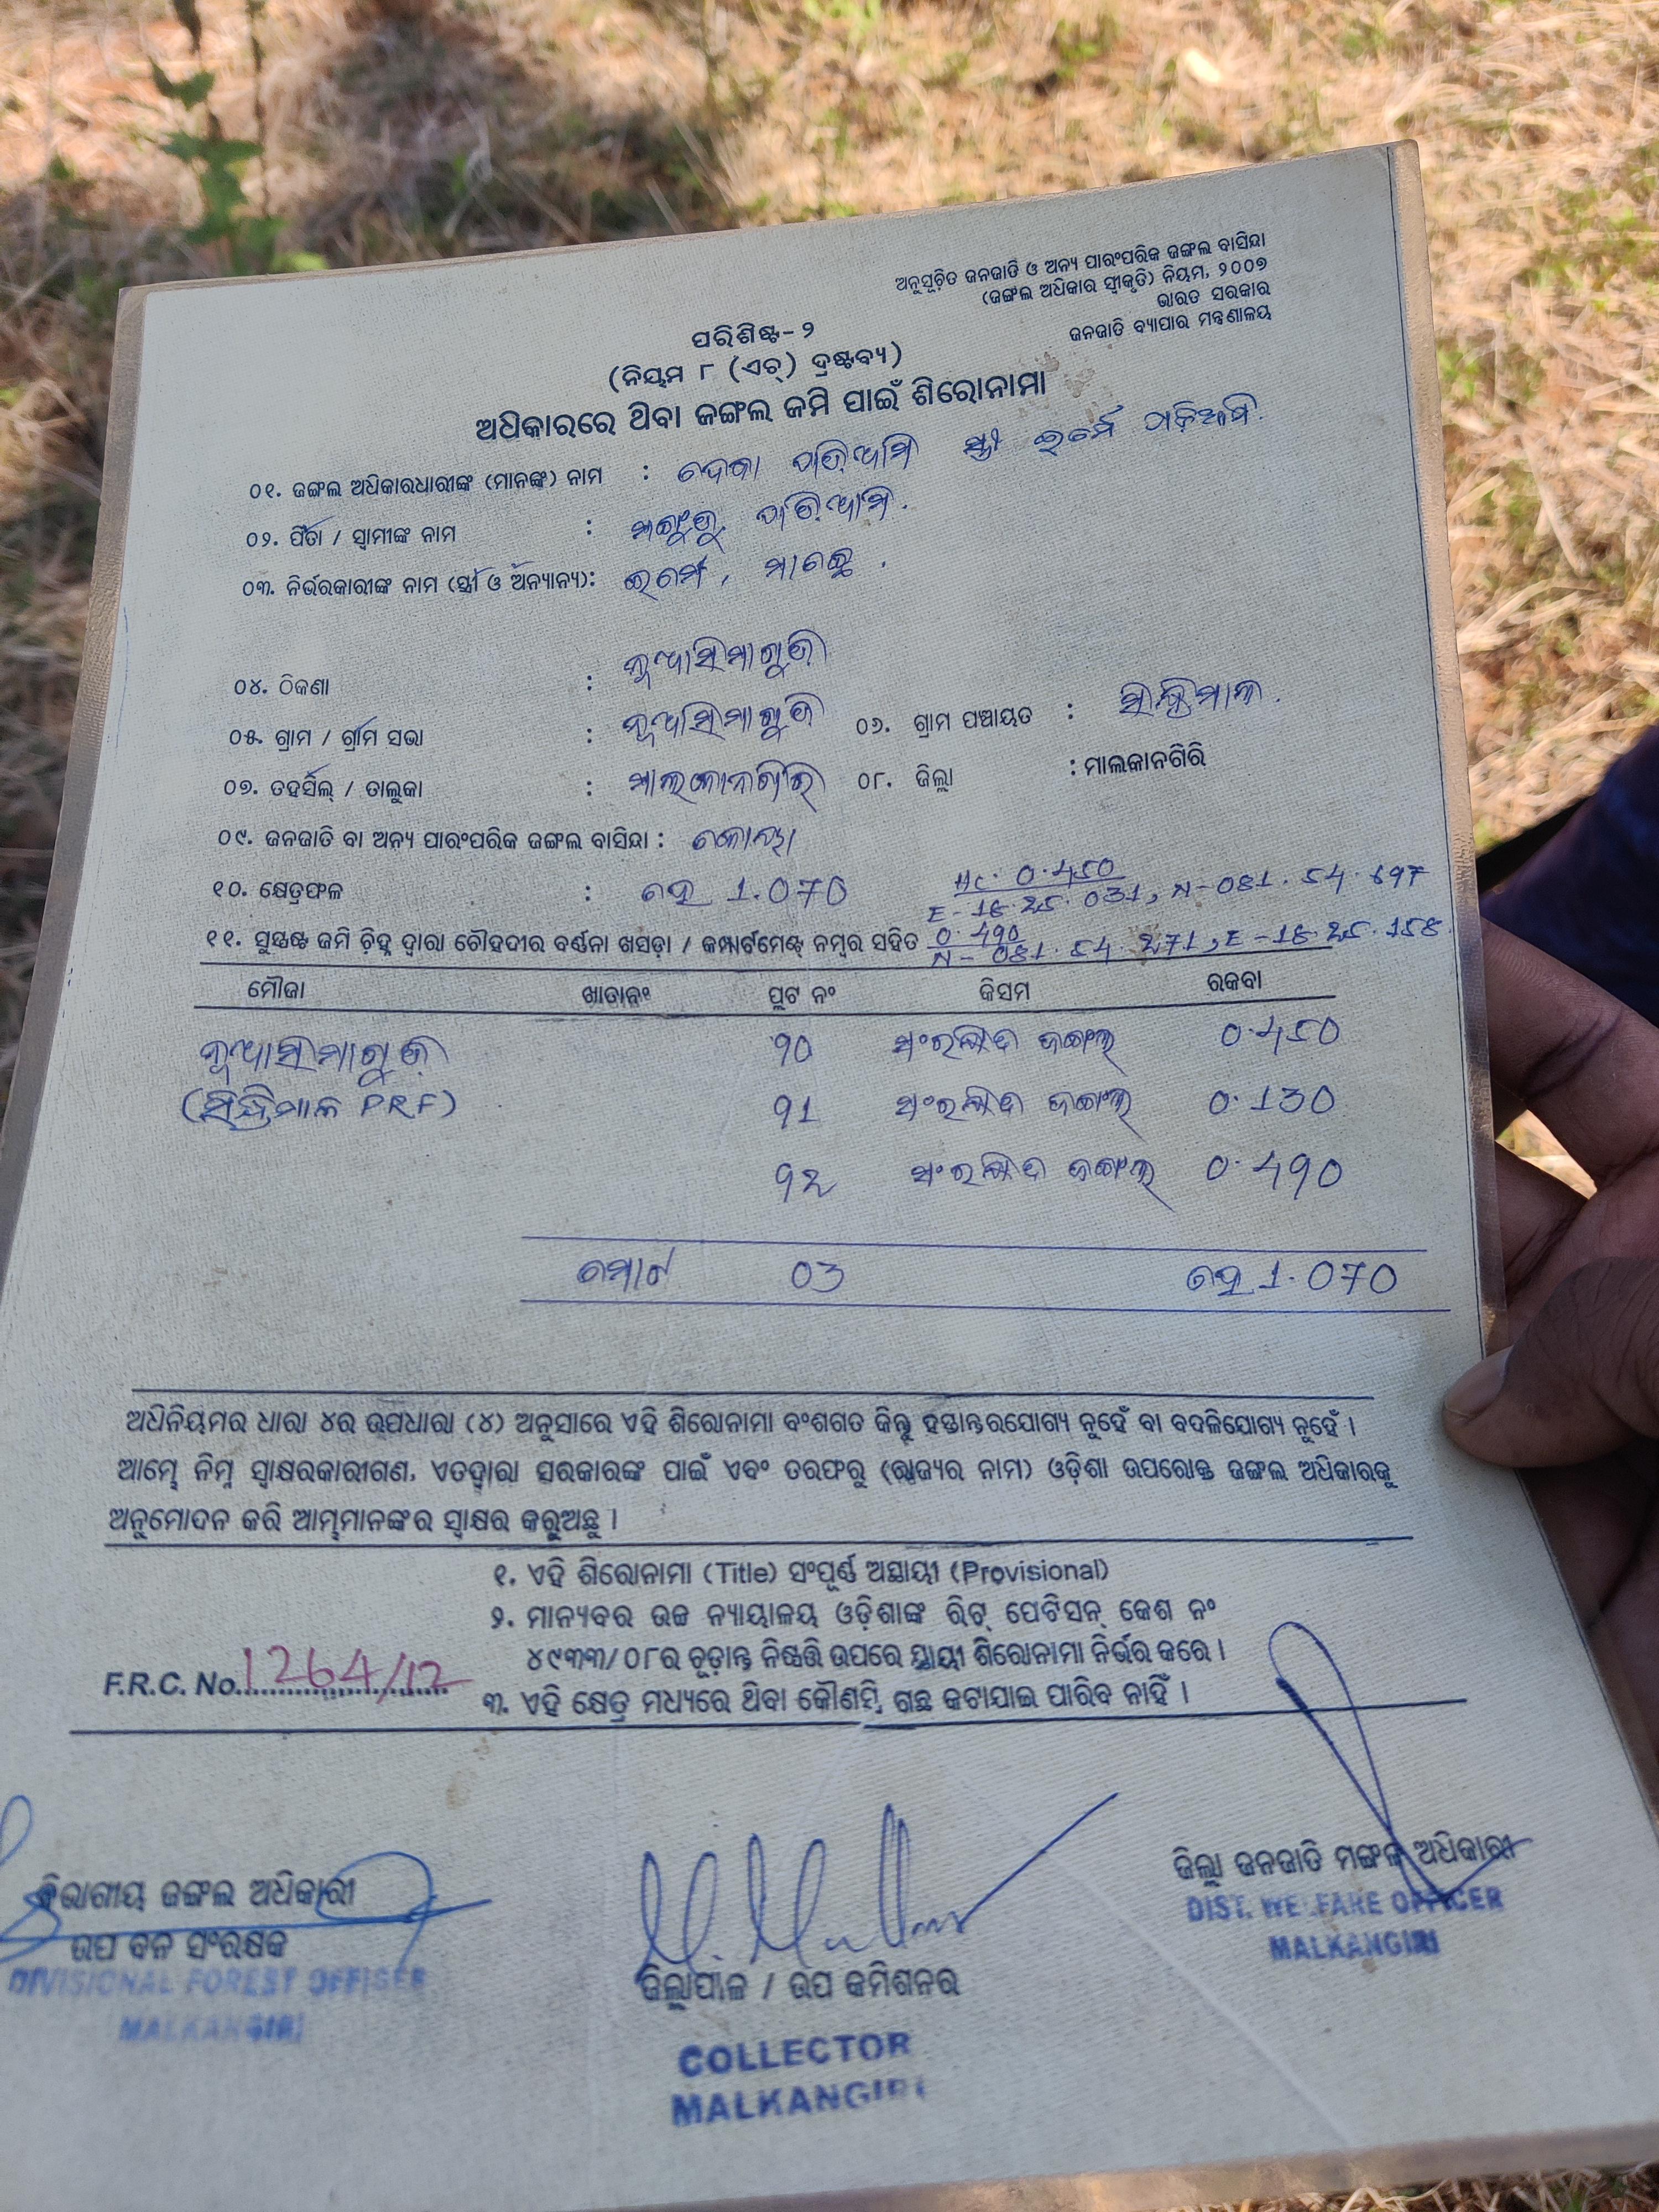 ଅନୁସୂଚିତ ଜନଜାତି ଓ ଅନ୍ୟ ପାରଂପରିକ ଜଙ୍ଗଲ ବାସିନ୍ଦା
(ଜଙ୍ଗଲ ଅଧିକାର ସ୍ୱୀକୃତି) ନିୟମ, ୨୦୦୭
ଭାରତ ସରକାର
ଜନଜାତି ବ୍ୟାପାର ମନ୍ତ୍ରଣାଳୟ
ପରିଶିଷ୍ଟ-୨
(ନିୟମ ୮ (ଏଚ୍) ଦ୍ରଷ୍ଟବ୍ୟ)
ଅଧିକାରରେ ଥିବା ଜଙ୍ଗଲ ଜମି ପାଇଁ ଶିରୋନାମା
୦୧. ଜଙ୍ଗଲ ଅଧିକାରଧାରୀଙ୍କ (ମାନଙ୍କ) ନାମ : ଦେବା ପଡ଼ିଆମି ସ୍ତ୍ରୀ ଇର୍ମେ ପଡ଼ିଆମି.
୦୨. ପିତା / ସ୍ୱାମୀଙ୍କ ନାମ : ପଡ଼ିଆମି.
୦୩. ନିର୍ଭରକାରୀଙ୍କ ନାମ (ସ୍ତ୍ରୀ ଓ ଅନ୍ୟାନ୍ୟ): ଇର୍ମେ,
୦୪. ଠିକଣା : ନୂଆସିମାଗୁଡ଼ି
୦୫. ଗ୍ରାମ / ଗ୍ରାମ ସଭା : ନୂଆସିମାଗୁଡ଼ି ୦୬. ଗ୍ରାମ ପଞ୍ଚାୟତ :
୦୭. ତହସିଲ୍ / ତାଲୁକା : ମାଲକାନଗିରି ୦୮. ଜିଲ୍ଲା : ମାଲକାନଗିରି
୦୯. ଜନଜାତି ବା ଅନ୍ୟ ପାରଂପରିକ ଜଙ୍ଗଲ ବାସିନ୍ଦା : କୋୟା
୧୦. କ୍ଷେତ୍ରଫଳ : ହେ 1.070 Hc. 0.450
E-18.25.031, N-081.54.697
୧୧. ସୁସ୍ପଷ୍ଟ ଜମି ଚିହ୍ନ ଦ୍ୱାରା ଚୌହଦୀର ବର୍ଣ୍ଣନା ଖସଡ଼ା / କମ୍ପାର୍ଟମେଣ୍ଟ ନମ୍ବର ସହିତ 0.490
N-081.54.271, E-18.25.158
ମୌଜା ଖାତାନଂ ପ୍ଲଟ ନଂ କିସମ ରକବା
ନୂଆସିମାଗୁଡ଼ି 90 ସଂରକ୍ଷିତ ଜଙ୍ଗଲ 0.450
PRF) 91 ସଂରକ୍ଷିତ ଜଙ୍ଗଲ 0.130
92 ସଂରକ୍ଷିତ ଜଙ୍ଗଲ 0.490
ମୋଟ 03 ହେ 1.070
ଅଧିନିୟମର ଧାରା ୪ର ଉପଧାରା (୪) ଅନୁସାରେ ଏହି ଶିରୋନାମା ବଂଶଗତ କିନ୍ତୁ ହସ୍ତାନ୍ତରଯୋଗ୍ୟ ନୁହେଁ ବା ବଦଳିଯୋଗ୍ୟ ନୁହେଁ ।
ଆମ୍ଭେ ନିମ୍ନ ସ୍ୱାକ୍ଷରକାରୀଗଣ, ଏତଦ୍ୱାରା ସରକାରଙ୍କ ପାଇଁ ଏବଂ ତରଫରୁ (ରାଜ୍ୟର ନାମ) ଓଡ଼ିଶା ଉପରୋକ୍ତ ଜଙ୍ଗଲ ଅଧିକାରକୁ
ଅନୁମୋଦନ କରି ଆମ୍ଭମାନଙ୍କର ସ୍ୱାକ୍ଷର କରୁଅଛୁ ।
୧. ଏହି ଶିରୋନାମା (Title) ସଂପୂର୍ଣ୍ଣ ଅସ୍ଥାୟୀ (Provisional)
୨. ମାନ୍ୟବର ଉଚ୍ଚ ନ୍ୟାୟାଳୟ ଓଡ଼ିଶାଙ୍କ ରିଟ୍ ପେଟିସନ୍ କେଶ ନଂ
୪୯୩୩/୦୮ର ଚୂଡ଼ାନ୍ତ ନିଷ୍ପତ୍ତି ଉପରେ ସ୍ଥାୟୀ ଶିରୋନାମା ନିର୍ଭର କରେ ।
F.R.C. No. 1264/12
୩. ଏହି କ୍ଷେତ୍ର ମଧ୍ୟରେ ଥିବା କୌଣସି ଗଛ କଟାଯାଇ ପାରିବ ନାହିଁ ।
ବିଭାଗୀୟ ଜଙ୍ଗଲ ଅଧିକାରୀ
ଉପ ବନ ସଂରକ୍ଷକ
DIVISIONAL FOREST OFFICER
MALKANGIRI
ଜିଲ୍ଲାପାଳ / ଉପ କମିଶନର
COLLECTOR
MALKANGIRI
ଜିଲ୍ଲା ଜନଜାତି ମଙ୍ଗଳ ଅଧିକାରୀ
DIST. WELFARE OFFICER
MALKANGIRI